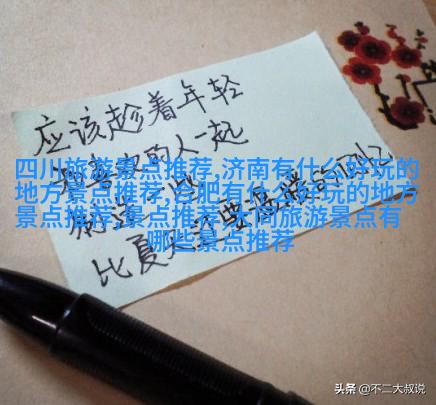 应该趁着年轻
跟喜欢的人一起
制造一些
比夏天还要温暖的
四川旅游景点推荐,济南有什么好玩的
地方景点推荐,合肥有什么好玩的地方
景点推荐,景点推荐,大同旅游景点有
哪些景点推荐
头条 @不二大叔说